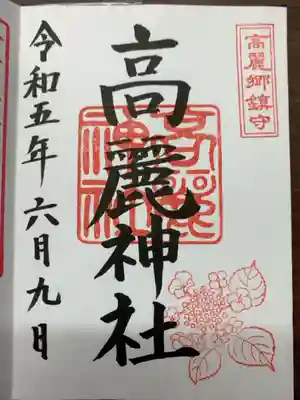 高麗郷鎮守
高麗神社
令和五年六月九日
高麗神社